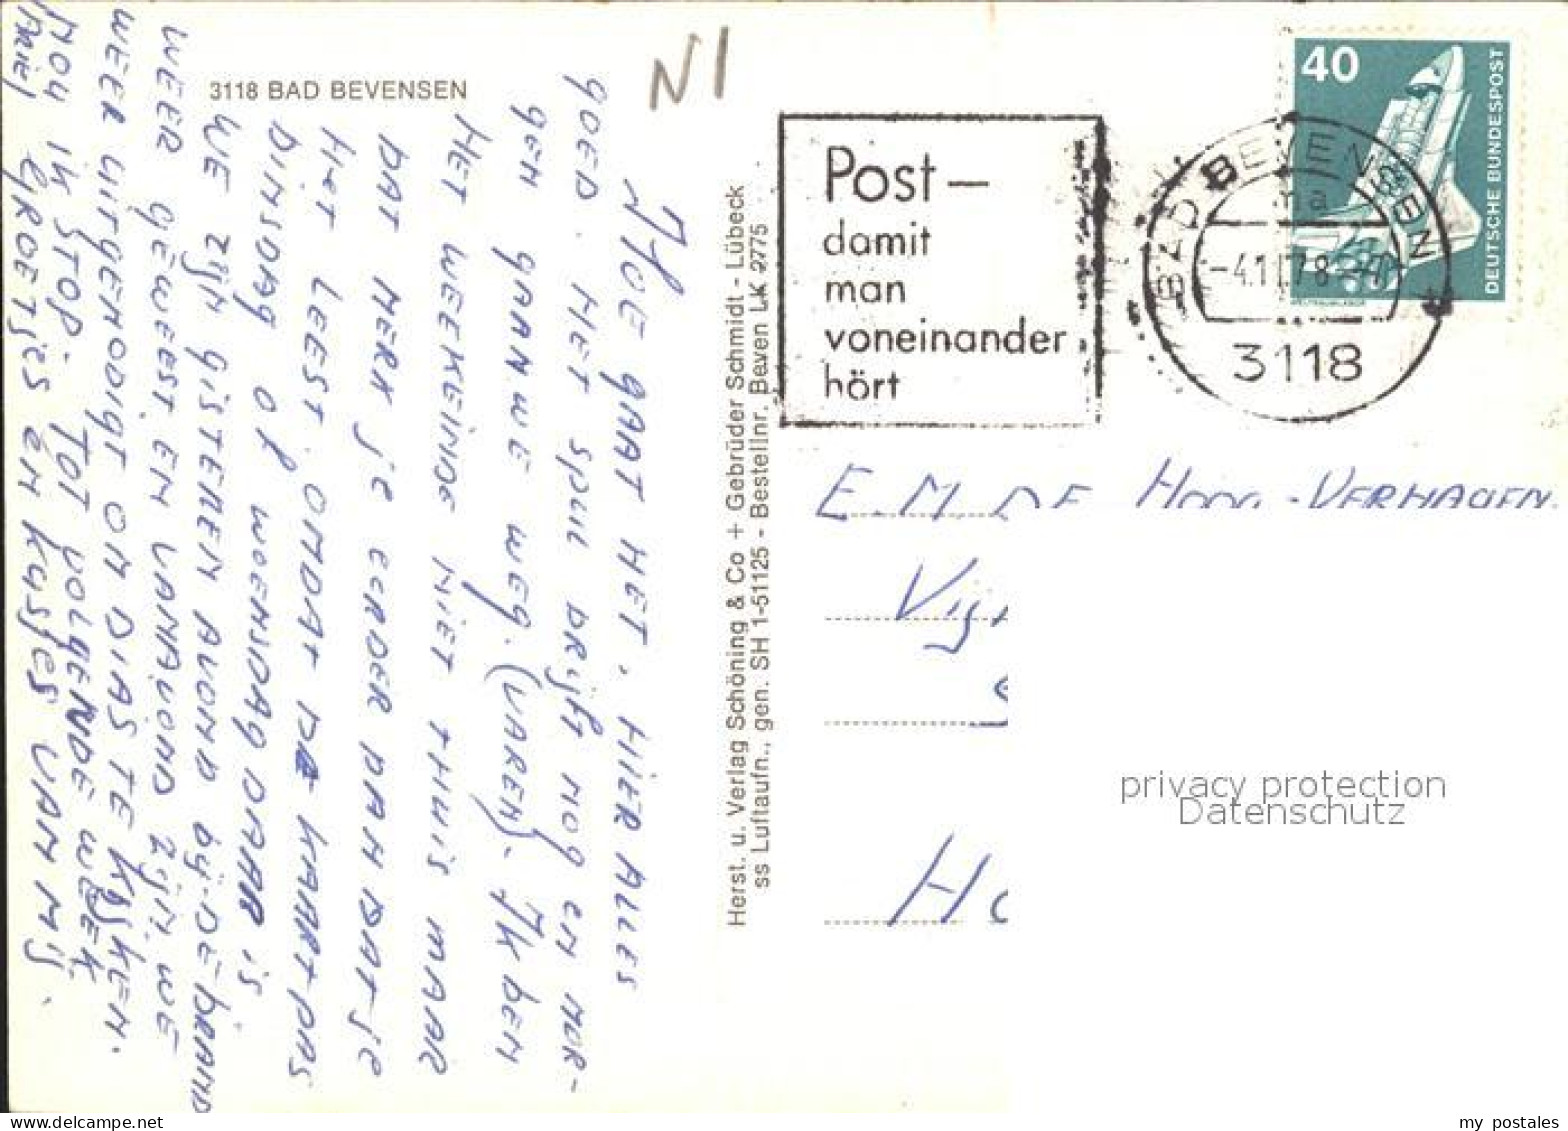 3118 BAD BEVENSEN
N1
HOE GAAT HET, HIER ALLES
GOED. HET SPUL DRIJFT NOG EN MOR-
GEN GAAN WE WEG. (VAREN). IK BEN
HET WEEKEINDE NIET THUIS MAAR
DAT MERK JE EERDER DAN DAT JE
HET LEEST. OMDAT DE KAART PAS
DINSDAG OF WOENSDAG DAAR IS
WE ZIJN GISTEREN AVOND BIJ DE BRAND
WEER GEWEEST EN VANAVOND ZIJN WE
WEER UITGENODIGT OM DIAS TE KIJKEN.
NOU IK STOP. TOT VOLGENDE WEEK
GROETJES EN KUSJES VAN MIJ.
Herst. u. Verlag Schöning & Co + Gebrüder Schmidt - Lübeck
ss Luftaufn., gen. SH 1-51125 - Bestellnr. Beven LK 2775
Post –
damit
man
voneinander
hört
BAD BEVENSEN
3118
40
DEUTSCHE BUNDESPOST
E. M. DE HOOG-VERHAGEN
privacy protection
Datenschutz
my postales